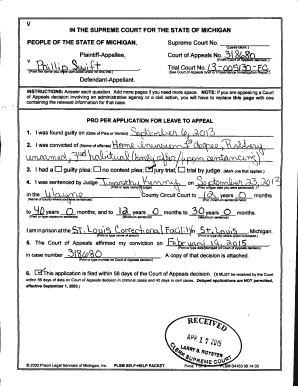 IN THE SUPREME COURT FOR THE STATE OF MICHIGAN
PEOPLE OF THE STATE OF MICHIGAN, Supreme Court No.
(Leave blank.)
Plaintiff-Appellee, Court of Appeals No. 318680
v
Phillip Swift Trial Court No. 13-005130-FC
Defendant-Appellant.
INSTRUCTIONS: Answer each question. Add more pages if you need more space. NOTE: If you are appealing a Court
of Appeals decision involving an administrative agency or a civil action, you will have to replace this page with one
containing the relevant information for that case.
PRO PER APPLICATION FOR LEAVE TO APPEAL
1. I was found guilty on (Date of Plea or Verdict) September 6, 2013
2. I was convicted of (Name of offense) Home Invasion 1st degree, Robbery
unarmed, 3rd habitual
3. I had a guilty plea; no contest plea; jury trial; trial by judge. (Mark one that applies.)
4. I was sentenced by Judge Timothy Kenny on September 23, 2013
in the Wayne County Circuit Court to 12 years 0 months
to 40 years 0 months, and to 12 years 0 months to 30 years 0 months.
I am in prison at the St. Louis Correctional Facility in St. Louis, Michigan.
5. The Court of Appeals affirmed my conviction on February 19, 2015
in case number 318680. A copy of that decision is attached.
6. This application is filed within 56 days of the Court of Appeals decision. (It MUST be received by the Court
within 56 days of date on Court of Appeals decision in criminal cases and 42 days in civil cases. Delayed applications are NOT permitted,
effective September 1, 2003.)
RECEIVED
APR 17 2015
LARRY S. ROYSTER
CLERK SUPREME COURT
© 2003 Prison Legal Services of Michigan, Inc. PLSM SELF-HELP PACKET